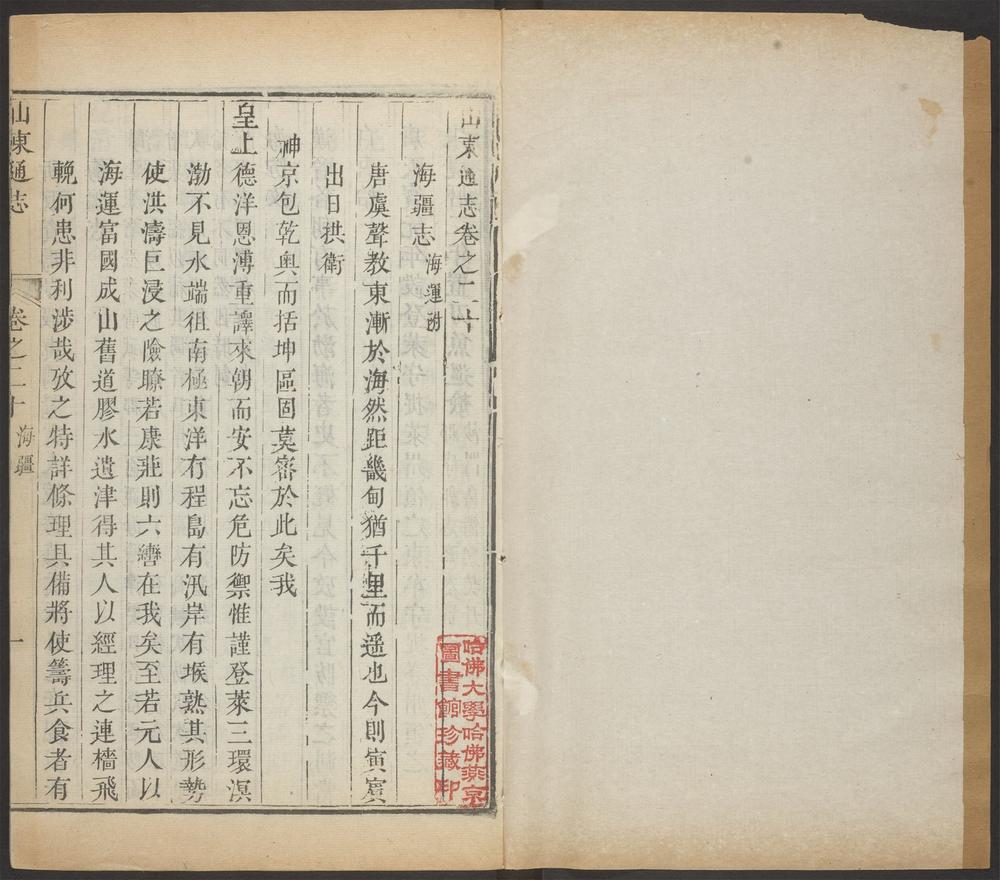 山東通志卷之二十
海疆志 海運附
唐虞聲教東漸於海然距畿甸猶千里而遥也今則寅賓
出日拱衛
神京包乾奥而括坤區固莫宻於此矣我
皇上德洋恩溥重譯來朝而安不忘危防禦惟謹登萊三環溟
渤不見水端徂南極東洋冇程島有汛岸有堠熟其形勢
使洪濤巨浸之險瞭若康莊則六轡在我矣至若元人以
海運富國成山舊道膠水遺津得其人以經理之連檣飛
輓何患非利涉哉攷之特詳條理具備將使籌兵食者有
山東通志
卷之二十
海疆
一
哈佛大學哈佛燕京
圖書館珍藏印